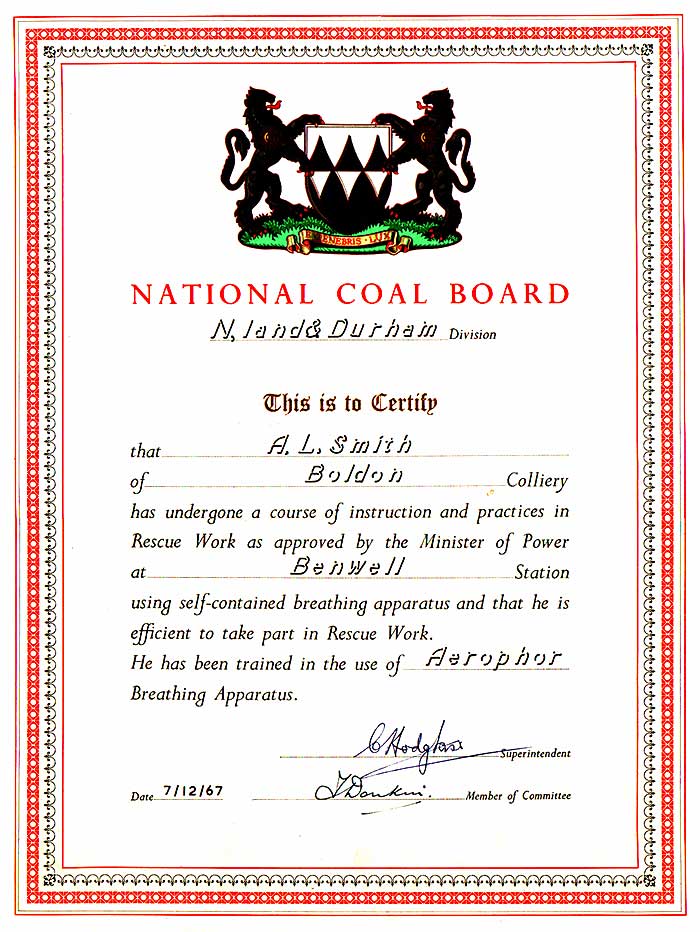 E TENEBRIS · LUX
NATIONAL COAL BOARD
N, land & Durham Division
This is to Certify
that A. L. Smith
of Boldon Colliery
has undergone a course of instruction and practices in
Rescue Work as approved by the Minister of Power
at Benwell Station
using self-contained breathing apparatus and that he is
efficient to take part in Rescue Work.
He has been trained in the use of Aerophor
Breathing Apparatus.
Superintendent
Date 7/12/67 Member of Committee